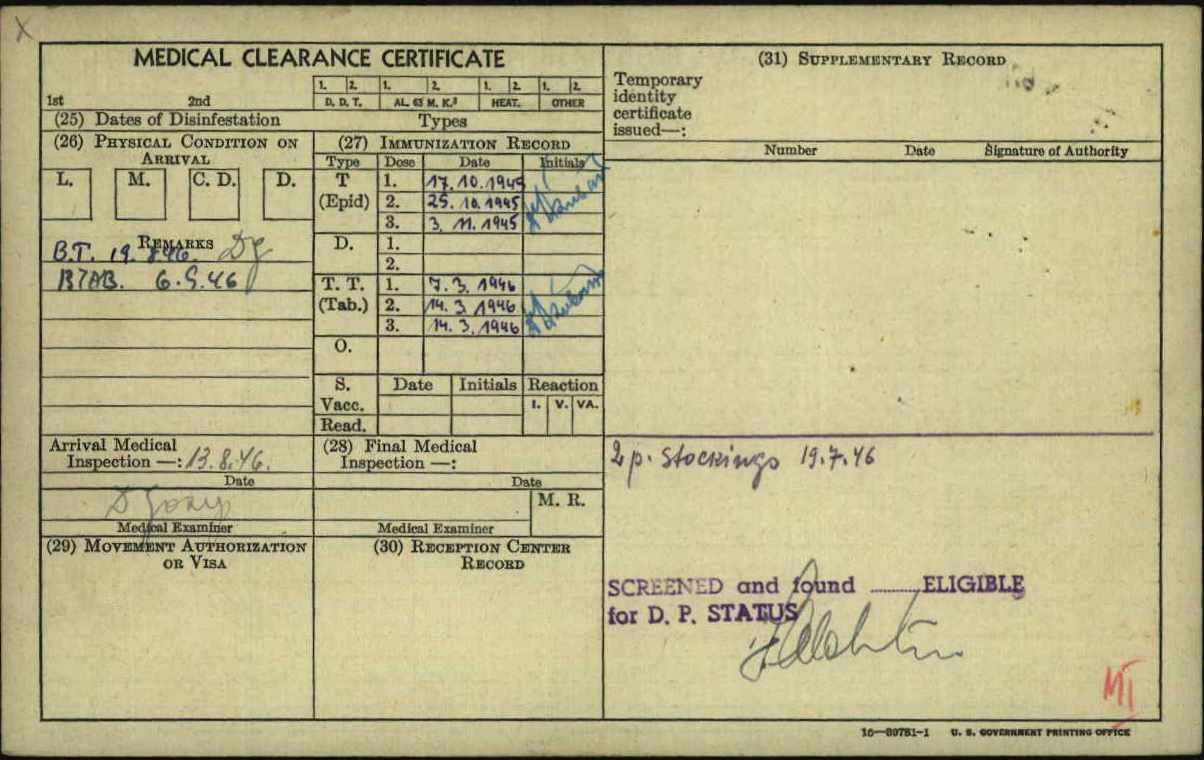 X
MEDICAL CLEARANCE CERTIFICATE
1. 2. 1. 2. 1. 2. 1. 2.
1st 2nd D. D. T. AL. 63 M. K.³ HEAT. OTHER
(25) Dates of Disinfestation Types
(26) PHYSICAL CONDITION ON ARRIVAL
L. M. C. D. D.
REMARKS
B.T. 19.8.46.
6.9.46
(27) IMMUNIZATION RECORD
Type Dose Date Initials
T (Epid) 1. 17.10.1945
2. 25.10.1945
3. 3.11.1945
D. 1.
2.
T. T. (Tab.) 1. 7.3.1946
2. 14.3.1946
3. 14.3.1946
O.
S. Date Initials Reaction
Vacc. I. V. VA.
Read.
Arrival Medical
Inspection —: 13.8.46.
Date
Medical Examiner
(28) Final Medical
Inspection —:
Date
M. R.
Medical Examiner
(29) MOVEMENT AUTHORIZATION
OR VISA
(30) RECEPTION CENTER
RECORD
(31) SUPPLEMENTARY RECORD
Temporary
identity
certificate
issued—:
Number Date Signature of Authority
2 p. stockings 19.7.46
SCREENED and found ........ELIGIBLE
for D. P. STATUS
16—39781-1 U. S. GOVERNMENT PRINTING OFFICE